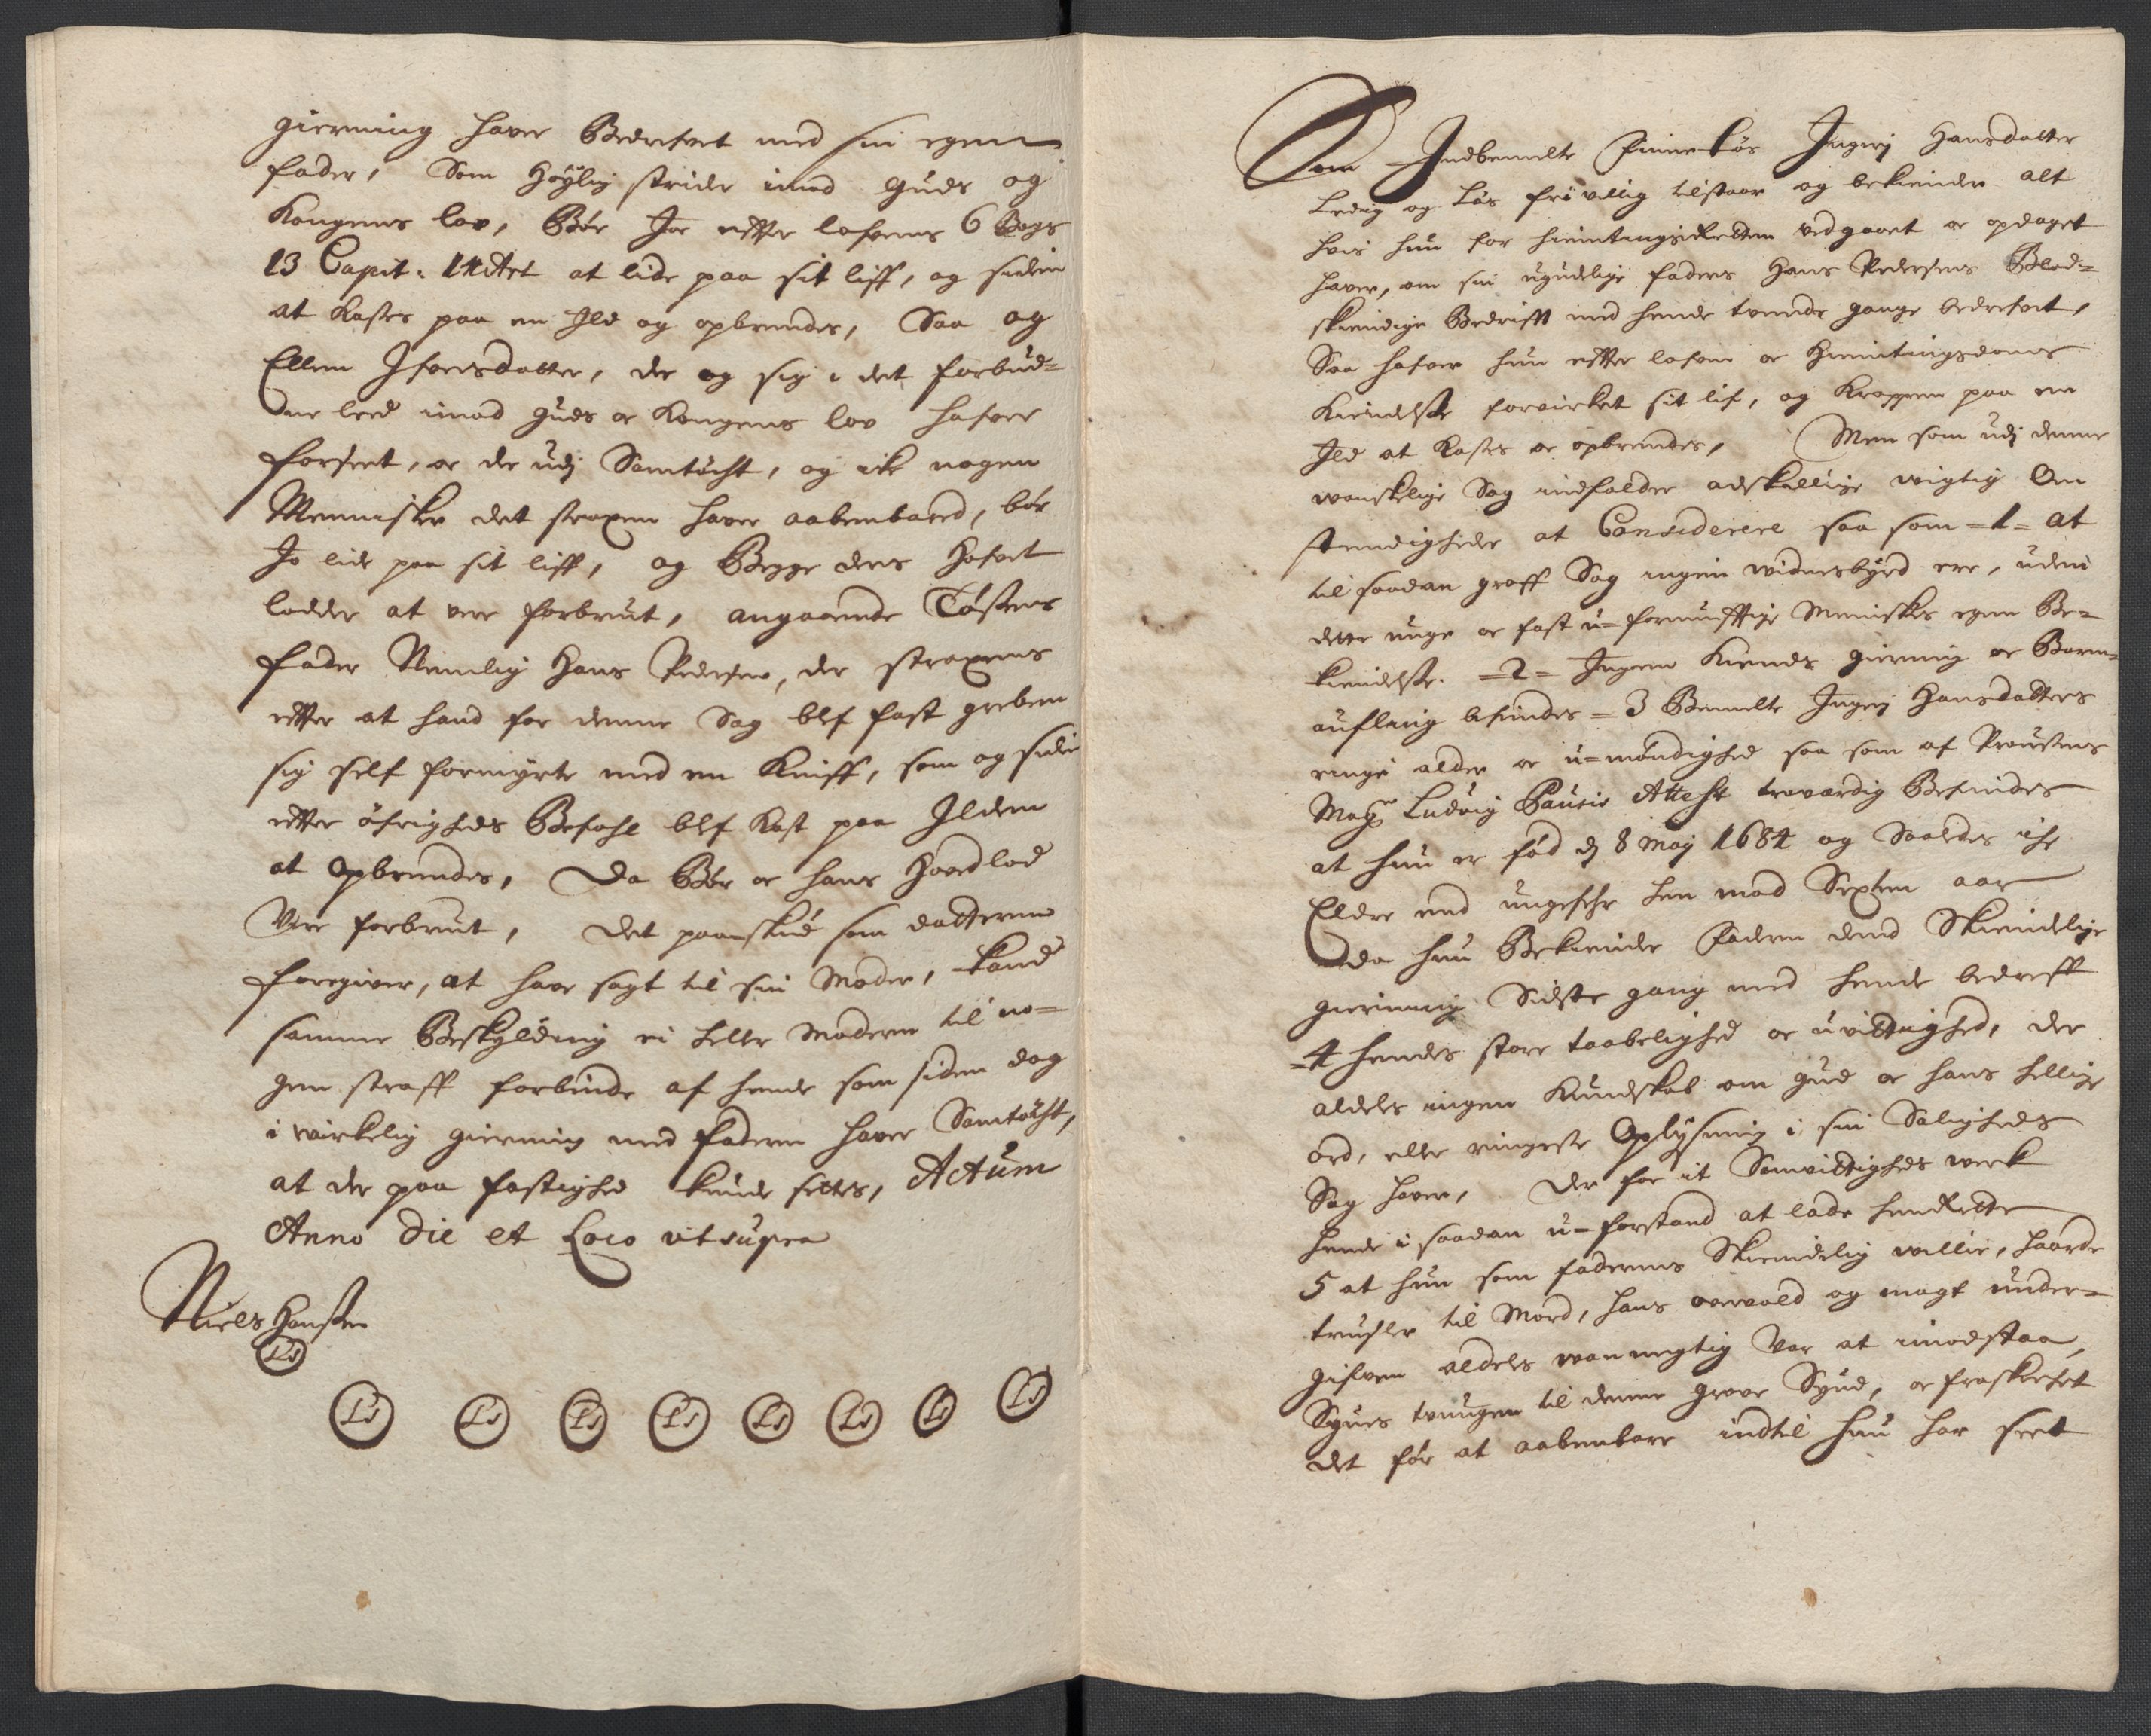 gierning haver Bedrefvet med sin egen
fader, Som Høÿlig strider imod Guds og
Kongens lov, Bør Jo efter lofvens 6 Bogs
13 Capit: 14 Art at lide paa sit liff, og siden
at Kastes paa en Ild og opbrendes, Saa og
Ellen Ifversdatter, der og sig i det forbud=
ne leed imod Guds og Kongens lov hafver
forseet, og der udj Samtøcht, og icke nogen
Mennisker det straxen haver aabenbared, bør
Jo lide paa sit liff, og Begge ders Hofvet
lodder at vere forbrut, angaaende Tøsens
fader Nemlig Hans Pedersen, der straxens
efter at hand for denne Sag blef fast greben
sig self formyrte med en Kniff, som og siden
efter øfrigheds Befahl blef Kast paa Ilden
at Opbrendes, Da Bør og hans Hoved lod
Vere forbrut, Det paaskud som datteren
foregiver, at have sagt til sin Moder, kand
samme Beskylding ei heller Moderen til no=
gen straff forbinde af hende som siden dog
i wirkelig gierning med faderen haver Samtøcht,
at der paa fastighed kunde settes, Actum
Anno Die et Loco ut supra
Niels Hansen
LS
LS LS LS LS LS LS LS LS
Som Indbemelte Finnetøs Ingerj Hansdatter
Ledig og Løs frivillig tilstaar og bekiender alt
hvis hun for hiemtingsRetten vedgaaet og opdaget
haver, om sin ugudelige faders Hans Pedersens Blod=
skiendige Bedrifft med hende tvende gange bedrefvet,
Saa hafver hun efter lofven og Hiemtingsdoms
Kiendelse forvirket sit lif, og Kroppen paa en
Ild at Kastes og opbrendes, Men som udj denne
wanskelige Sag indfalder adskellige wigtig Om
stendigheder at Considerere saa som =1= at
til saadan groff Sag ingen widnesbyrd ere, uden
dette unge og fast u=fornufftige Meniskes egen Be=
kiendelse. =2= Ingen Kiends gierning og Barn=
aufling befindes =3 Bemelte Ingerj Hansdatters
ringe alder og u=myndighed saa som af Proustens
Magr Ludvig Pausis Attest trovardig Befindes
at hun er fød d 8 Maj 1684 og Saaledes iche
Eldre end ungefehr hen mod Sexten aar
da hun Bekiende Faderen dend Skiendelige
gierning Sidste gang med hende bedreff
=4 hendes store taabelighed og uvittighed, der
aldeles ingen Kundskab om Gud og hans hellige
ord, eller ringeste Oplysning i sin Saligheds
Sag haver, Der for it Samvittigheds werk
hende i saadan u=forstand at lade henRette
5 at hun som faderens Skiendelig willie, haarde
trusler til Mord, hans overvold og magt under=
gifven aldeles wanmegtig Var at imodstaa,
Synes tvungen til denne grove Synd, og fraskrechet
det før at aabenbare indtil hun har seet